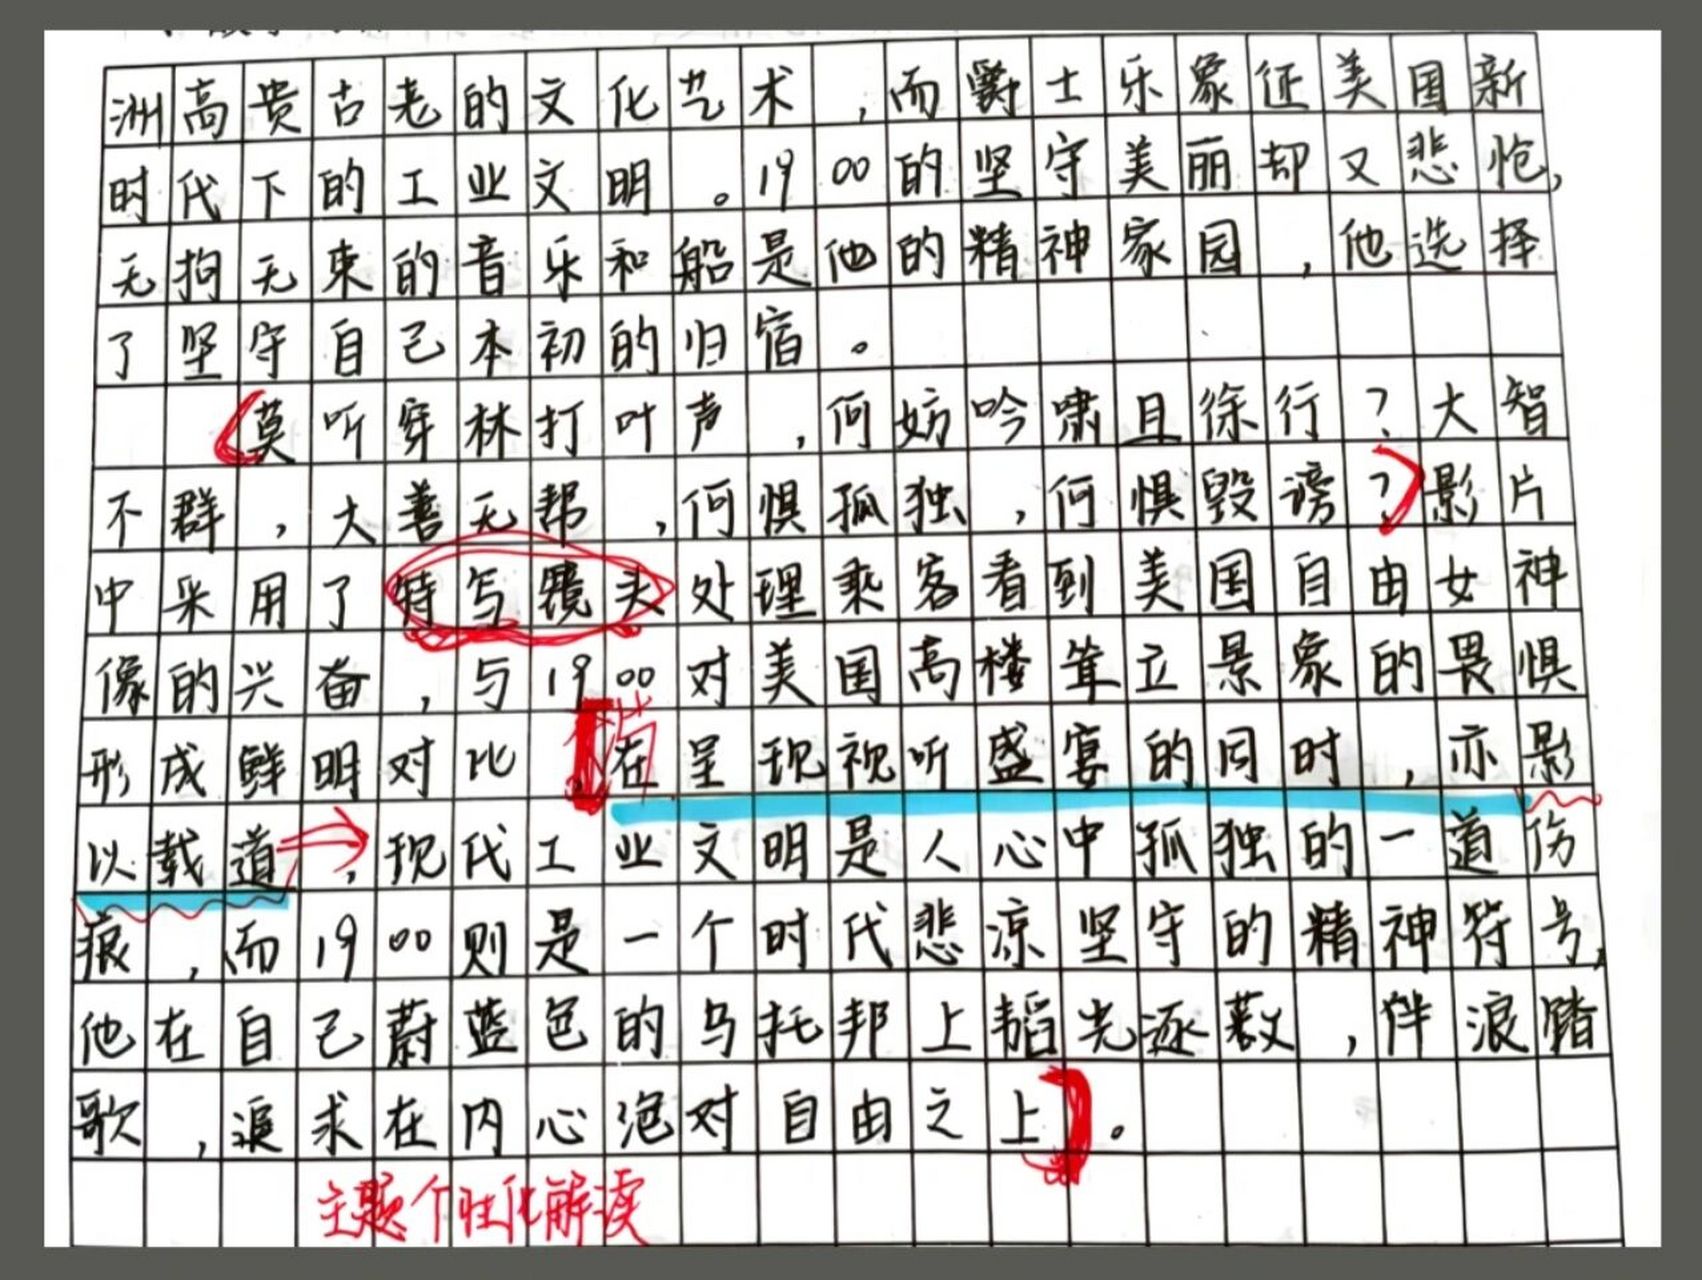 洲高贵古老的文化艺术，而爵士乐象征美国新
时代下的工业文明。1900的坚守美丽却又悲怆，
无拘无束的音乐和船是他的精神家园，他选择
了坚守自己本初的归宿。
莫听穿林打叶声，何妨吟啸且徐行？大智
不群，大善无帮，何惧孤独，何惧毁谤？影片
中采用了特写镜头处理乘客看到美国自由女神
像的兴奋，与1900对美国高楼耸立景象的畏惧
形成鲜明对比，在呈现视听盛宴的同时，亦影
以载道，现代工业文明是人心中孤独的一道伤
痕，而1900则是一个时代悲凉坚守的精神符号，
他在自己蔚蓝色的乌托邦上韬光逐薮，伴浪踏
歌，追求在内心绝对自由之上。
主题个性化解读